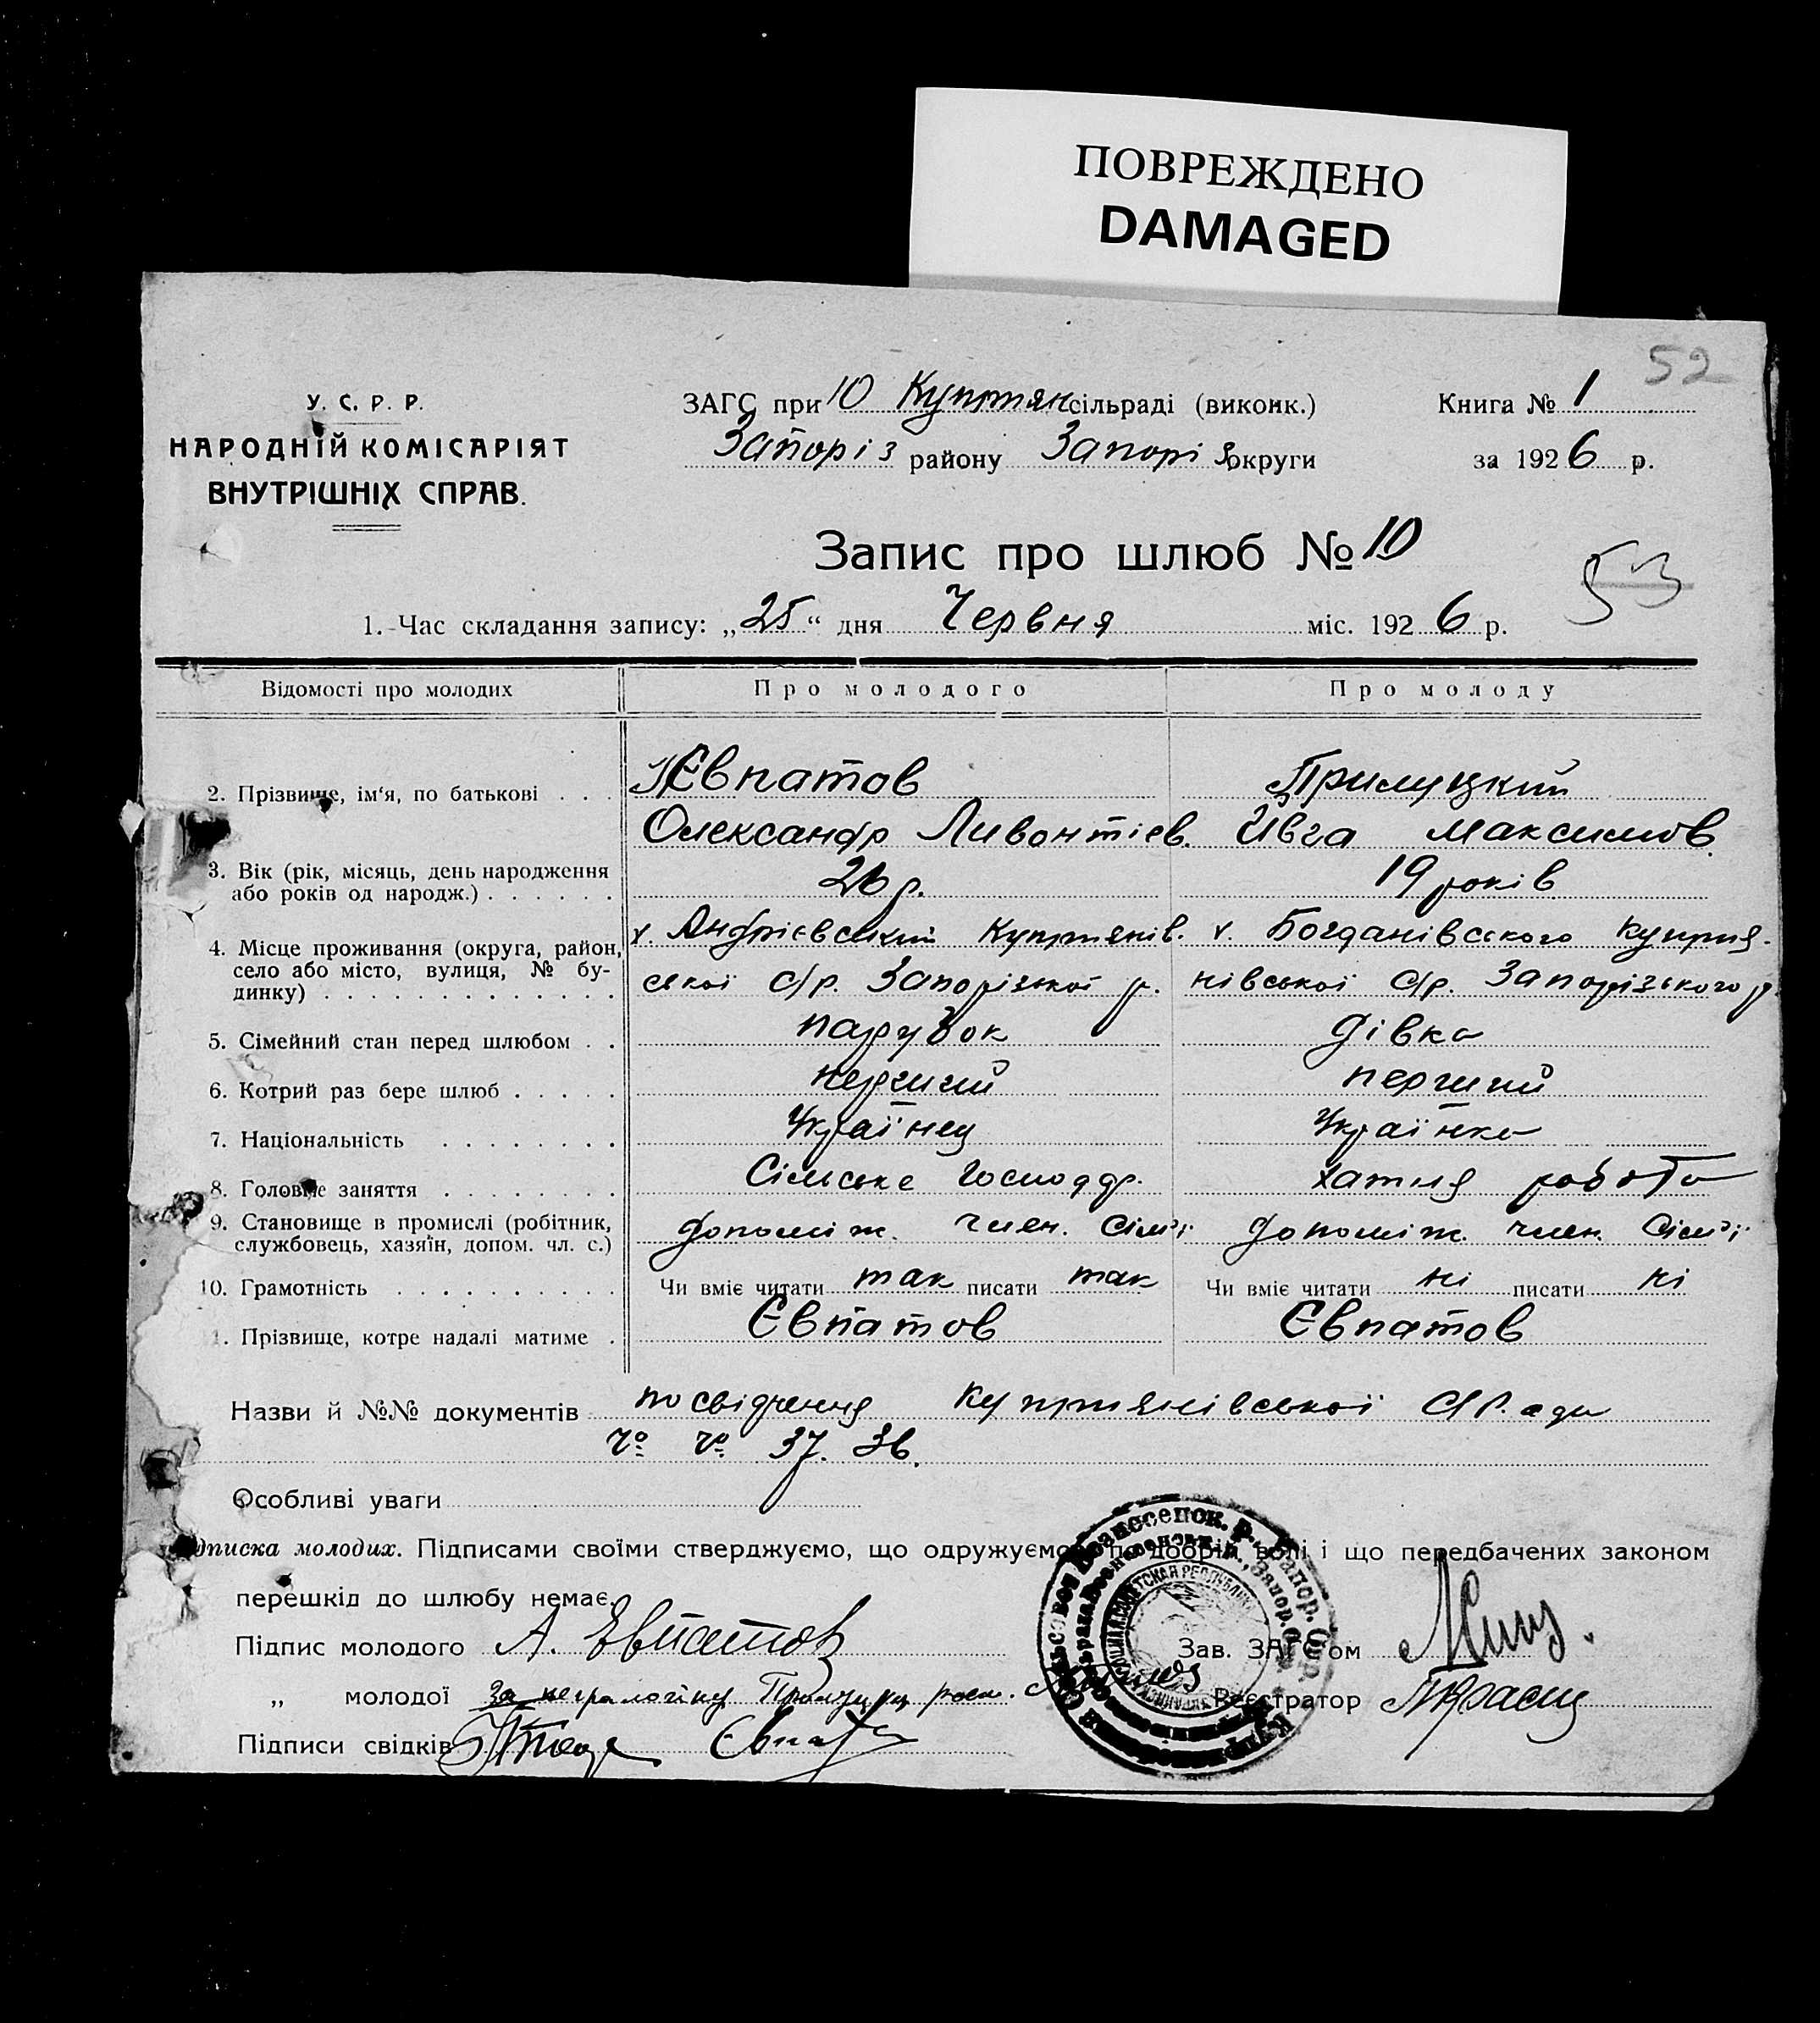 ПОВРЕЖДЕНО
DAMAGED
52
У. С. Р. Р.
НАРОДНІЙ КОМІСАРІЯТ
ВНУТРІШНІХ СПРАВ.
ЗАГС при 10 Куптян сільраді (виконк.)
Запоріз району Запоріз округи
Книга № 1
за 1926 р.
Запис про шлюб № 10
53
1. Час складання запису: „25“ дня Червня міс. 1926 р.
Відомості про молодих Про молодого Про молоду
2. Прізвище, ім‘я, по батькові . . . Євпатов Прилуцкий
Олександр Ливонтієв. Ивга Максимов.
3. Вік (рік, місяць, день народження
або років од народж.) . . . . . . 26 р. 19 років
4. Місце проживання (округа, район,
село або місто, вулиця, № бу-
динку) . . . . . . . . . . . . .
х. Андрієвський Купріянів. х. Богданівського Купрія-
ської с/р. Запорізької р. нівської с/р. Запорізького р
5. Сімейний стан перед шлюбом . . парубок дівка
6. Котрий раз бере шлюб . . . . . перший перший
7. Національність . . . . . . . . Українец Українка
8. Головне заняття . . . . . . . . Сільске господар. хатня робота
9. Становище в промислі (робітник,
службовець, хазяїн, допом. чл. с.) допоміж. член. Сім'ї допоміж. член. Сім'ї
10. Грамотність . . . . . . . . . . Чи вміє читати так писати так Чи вміє читати ні писати ні
1. Прізвище, котре надалі матиме . Євпатов Євпатов
Назви й №№ документів посвідчення Купріянівської С/Ради
№ № 37. 36.
Особливі уваги
дписка молодих. Підписами своїми стверджуємо, що одружуємо по добрій волі і що передбачених законом
перешкід до шлюбу немає.
Підпис молодого А. Евпатов
Зав. ЗАГС'ом
„ молодої за неграмотну Прилуцку росп.
Реєстратор
Підписи свідків Євпат